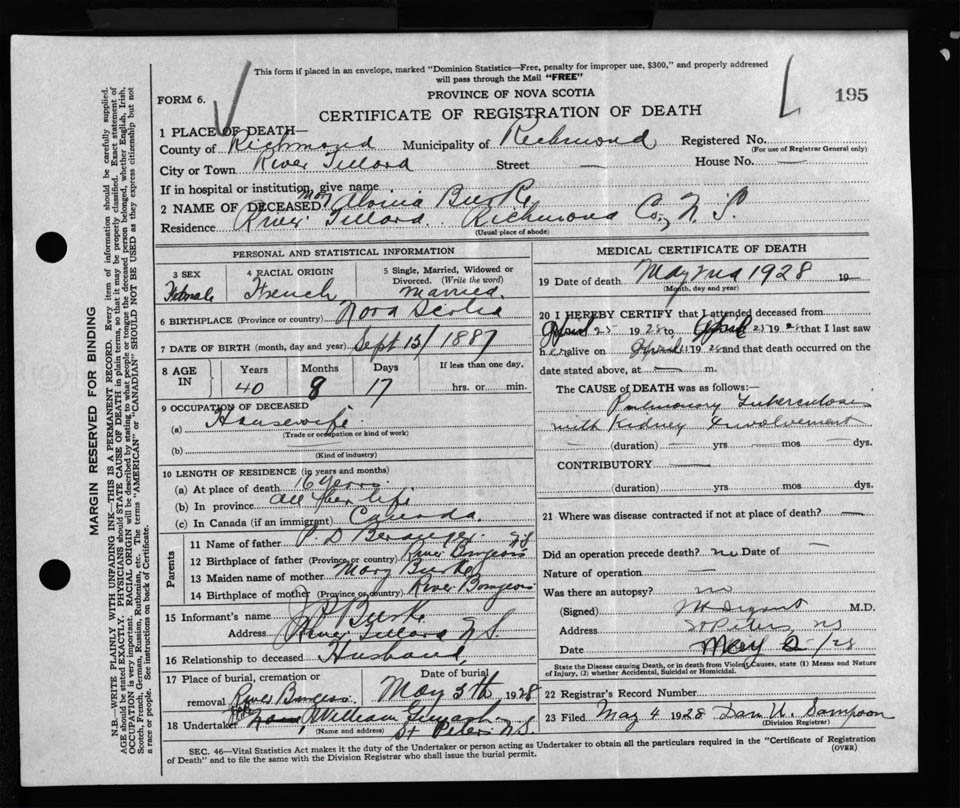 This form if placed in an envelope, marked "Dominion Statistics—Free, penalty for improper use, $300," and properly addressed
will pass through the Mail "FREE"
FORM 6.
PROVINCE OF NOVA SCOTIA
195
CERTIFICATE OF REGISTRATION OF DEATH
1 PLACE OF DEATH—
County of Richmond Municipality of Richmond Registered No.
(For use of Registrar General only)
City or Town River Tillard Street — House No. —
If in hospital or institution, give name
2 NAME OF DECEASED Mrs Burke
Residence River Tillard. Richmond Co, N.S.
(Usual place of abode)
PERSONAL AND STATISTICAL INFORMATION
3 SEX
Female
4 RACIAL ORIGIN
French
5 Single, Married, Widowed or
Divorced. (Write the word)
Married.
6 BIRTHPLACE (Province or country) Nova Scotia
7 DATE OF BIRTH (month, day and year) Sept 15/1887
8 AGE
IN
Years
40
Months
8
Days
17
If less than one day,
hrs. or min.
9 OCCUPATION OF DECEASED
(a) Housewife
(Trade or occupation or kind of work)
(b)
(Kind of industry)
10 LENGTH OF RESIDENCE (in years and months)
(a) At place of death 16 years
(b) In province all her life
(c) In Canada (if an immigrant) Canada.
Parents
11 Name of father P. D
12 Birthplace of father (Province or country) River Bourgeois NS
13 Maiden name of mother Mary Burke
14 Birthplace of mother (Province or country) River Bourgeois
15 Informant's name Burke
Address River Tillard N.S.
16 Relationship to deceased Husband
17 Place of burial, cremation or
removal River Bourgeois May 5th 1928
Date of burial
18 Undertaker William
(Name and address) St Peters N.S.
MEDICAL CERTIFICATE OF DEATH
19 Date of death May 2nd 1928 19—
(Month, day and year)
20 I HEREBY CERTIFY that I attended deceased from
April 25 1928 to April 25 1928 that I last saw
her alive on April 1928 and that death occurred on the
date stated above, at — m.
The CAUSE of DEATH was as follows:—
Pulmonary Tuberculosis
with Kidney Involvement
— (duration) — yrs — mos — dys.
CONTRIBUTORY —
(duration) yrs mos dys.
21 Where was disease contracted if not at place of death? —
Did an operation precede death? no Date of —
Nature of operation —
Was there an autopsy? no
(Signed) M.D.
Address St Peters NS
Date May 2/28
State the Disease causing Death, or in death from Violent Causes, state (1) Means and Nature
of Injury, (2) whether Accidental, Suicidal or Homicidal.
22 Registrars Record Number
23 Filed May 4 1928 Dan U. Sampson
(Division Registrar)
SEC. 46—Vital Statistics Act makes it the duty of the Undertaker or person acting as Undertaker to obtain all the particulars required in the "Certificate of Registration
of Death" and to file the same with the Division Registrar who shall issue the burial permit.
(OVER)
MARGIN RESERVED FOR BINDING
N.B.—WRITE PLAINLY WITH UNFADING INK—THIS IS A PERMANENT RECORD. Every item of information should be carefully supplied.
AGE should be stated EXACTLY. PHYSICIANS should STATE CAUSE OF DEATH in plain terms, so that it may be properly classified. Exact statement of
OCCUPATION is very important. RACIAL ORIGIN will be described by stating to what people or tongue the deceased person belonged, whether English, Irish,
Scotch, French, German, Russian, Ruthenian, etc. The terms "AMERICAN" or "CANADIAN" SHOULD NOT BE USED as they express citizenship but not
a race or people. See instructions on back of Certificate.